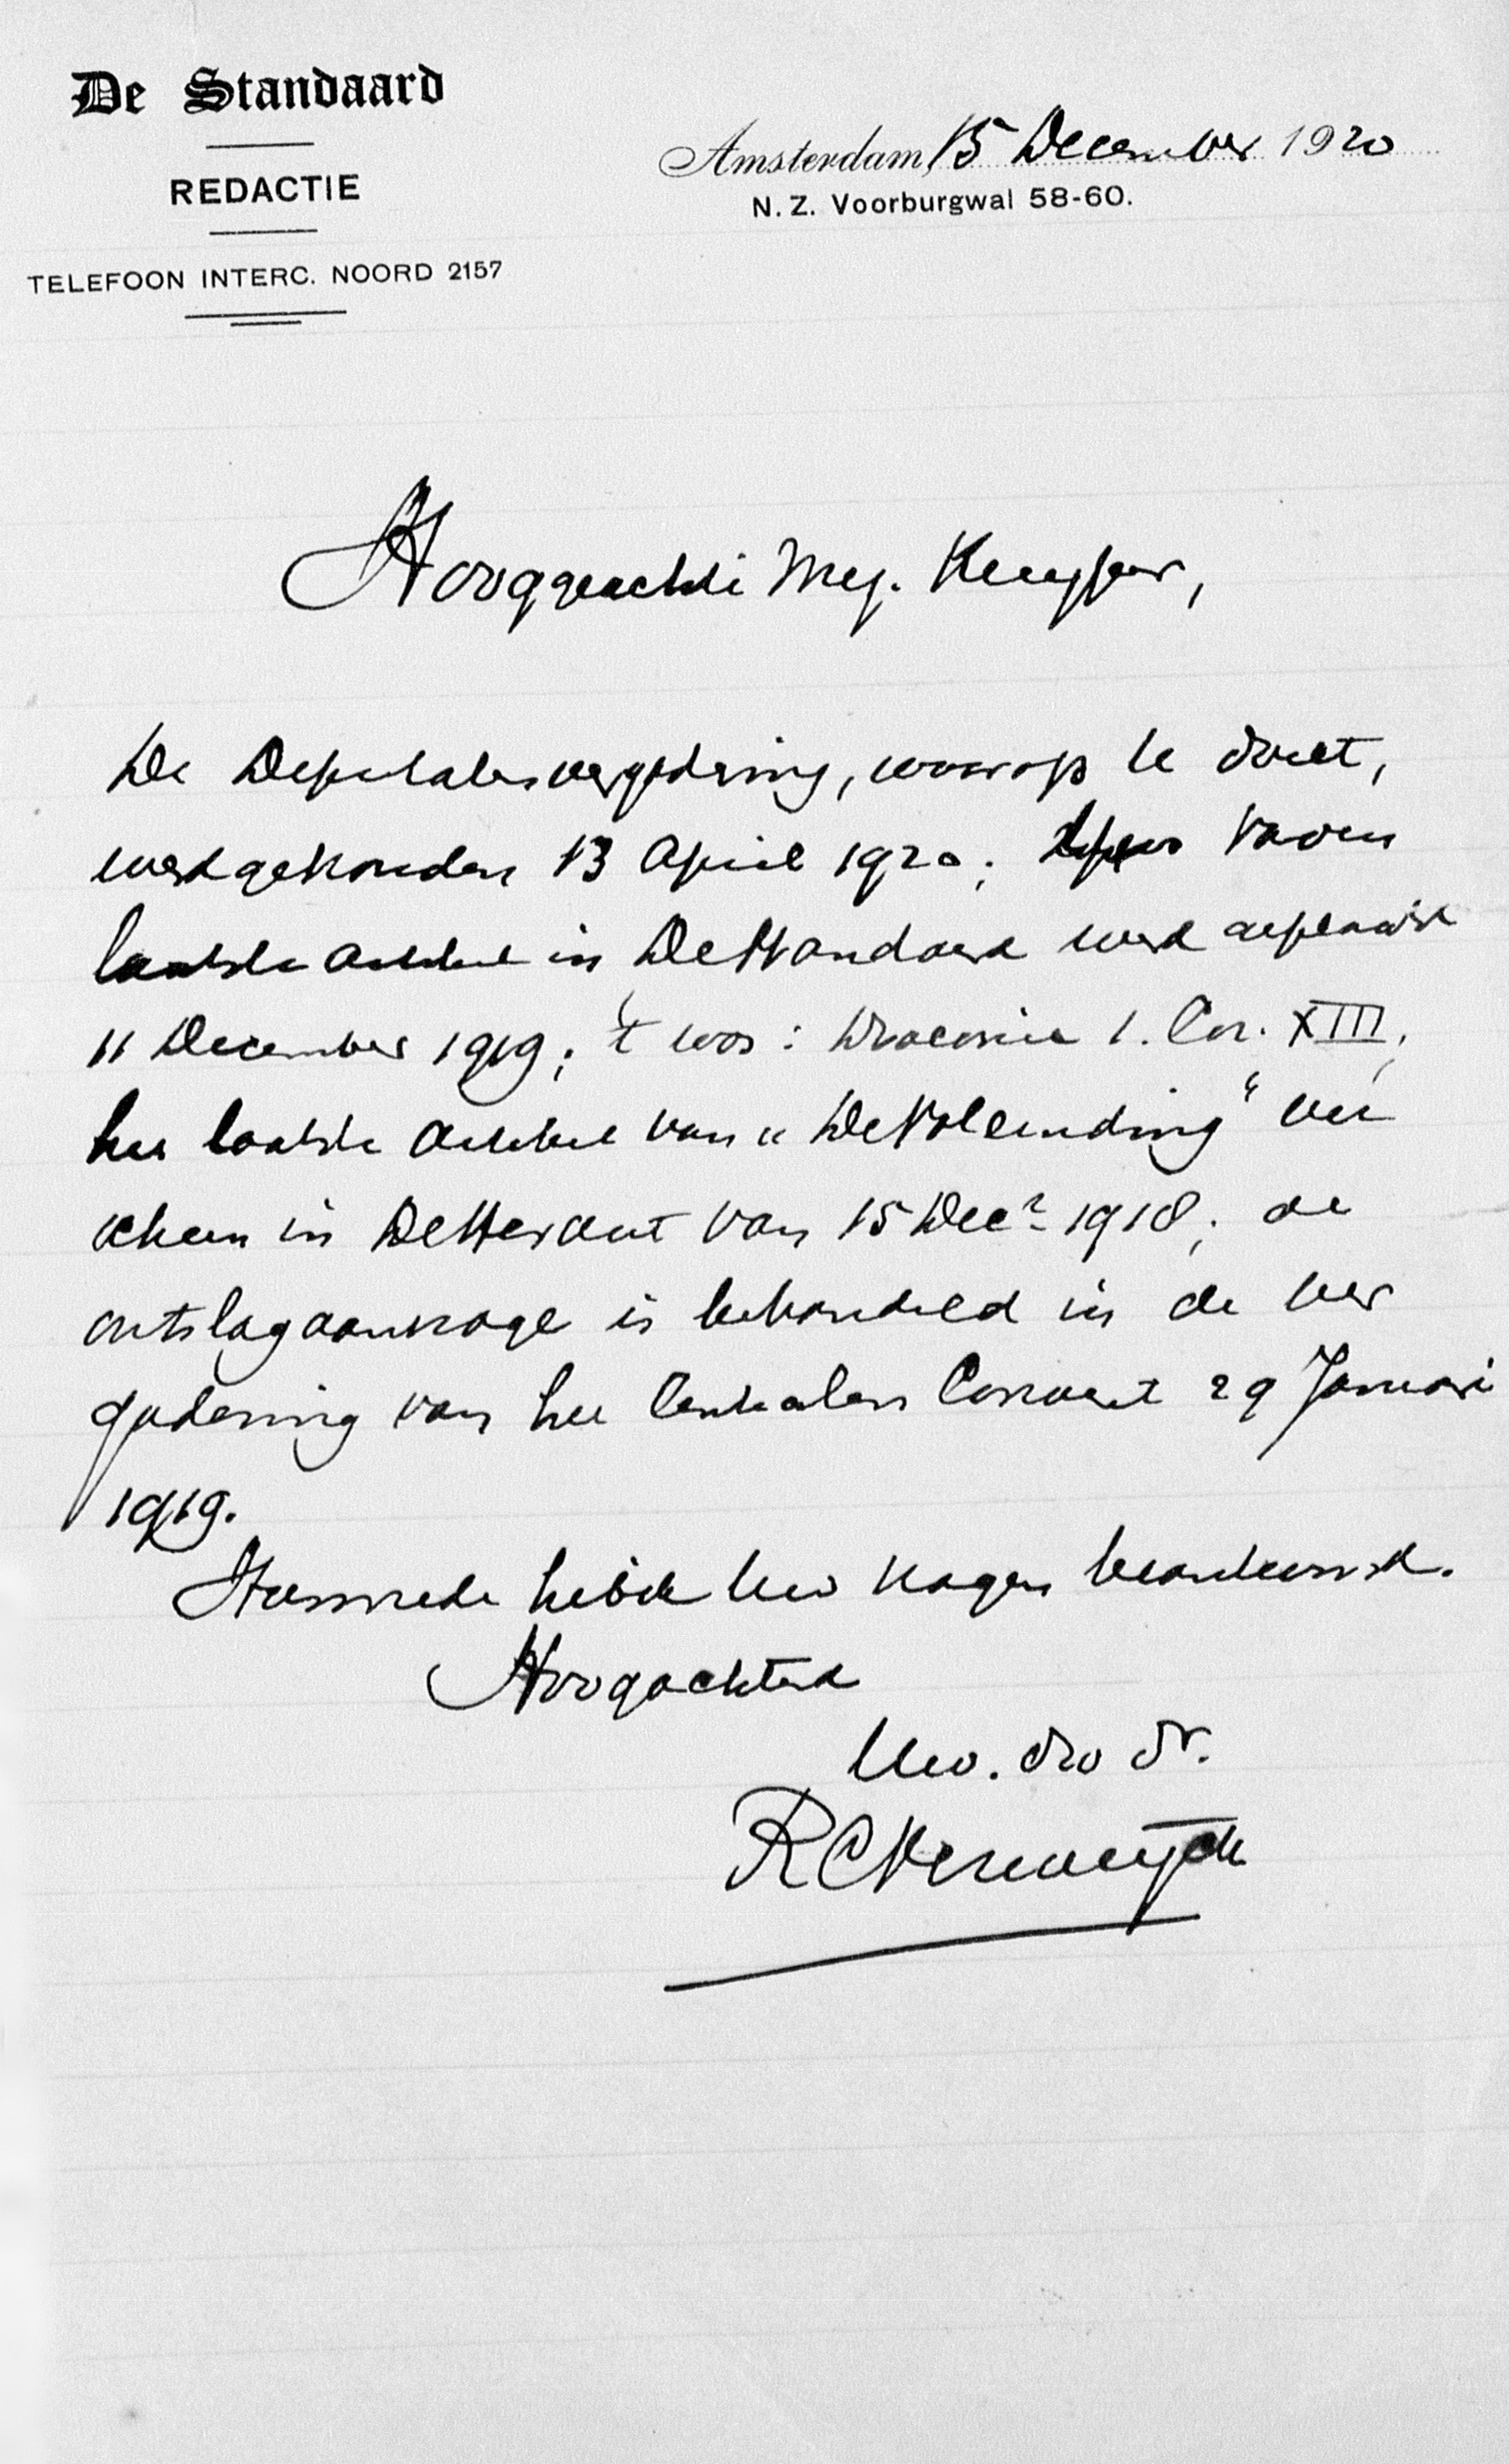 De Standaard
REDACTIE
TELEFOON INTERC. NOORD 2157
Amsterdam, 15 December 1920
N. Z. Voorburgwal 58-60.
Hooggeachte Mej. Kuyper,
De Deputatenvergadering, waarop U doelt,
werd gehouden 13 April 1920; Vaders
laatste artikel in De Standaard werd geplaatst
11 December 1919; 't was: 1. Cor. XIII;
het laatste artikel van „De Voleinding" ver
scheen in De Heraut van 15 Decr 1918; de
ontslagaanvrage is behandeld in de ver
gadering van het Centralen Convent 29 Januari
1919.
Hiermede heb ik Uw vragen beantwoord.
Hoogachtend
Uw. dw dr.
R C Verweyck